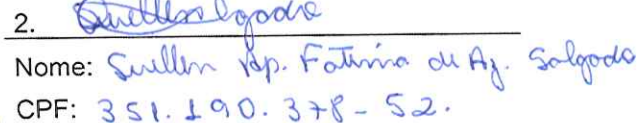 2. Suellen Salgado
Nome: Suellen Ap. Fatima de Az. Salgado
CPF: 351.190.378-52.